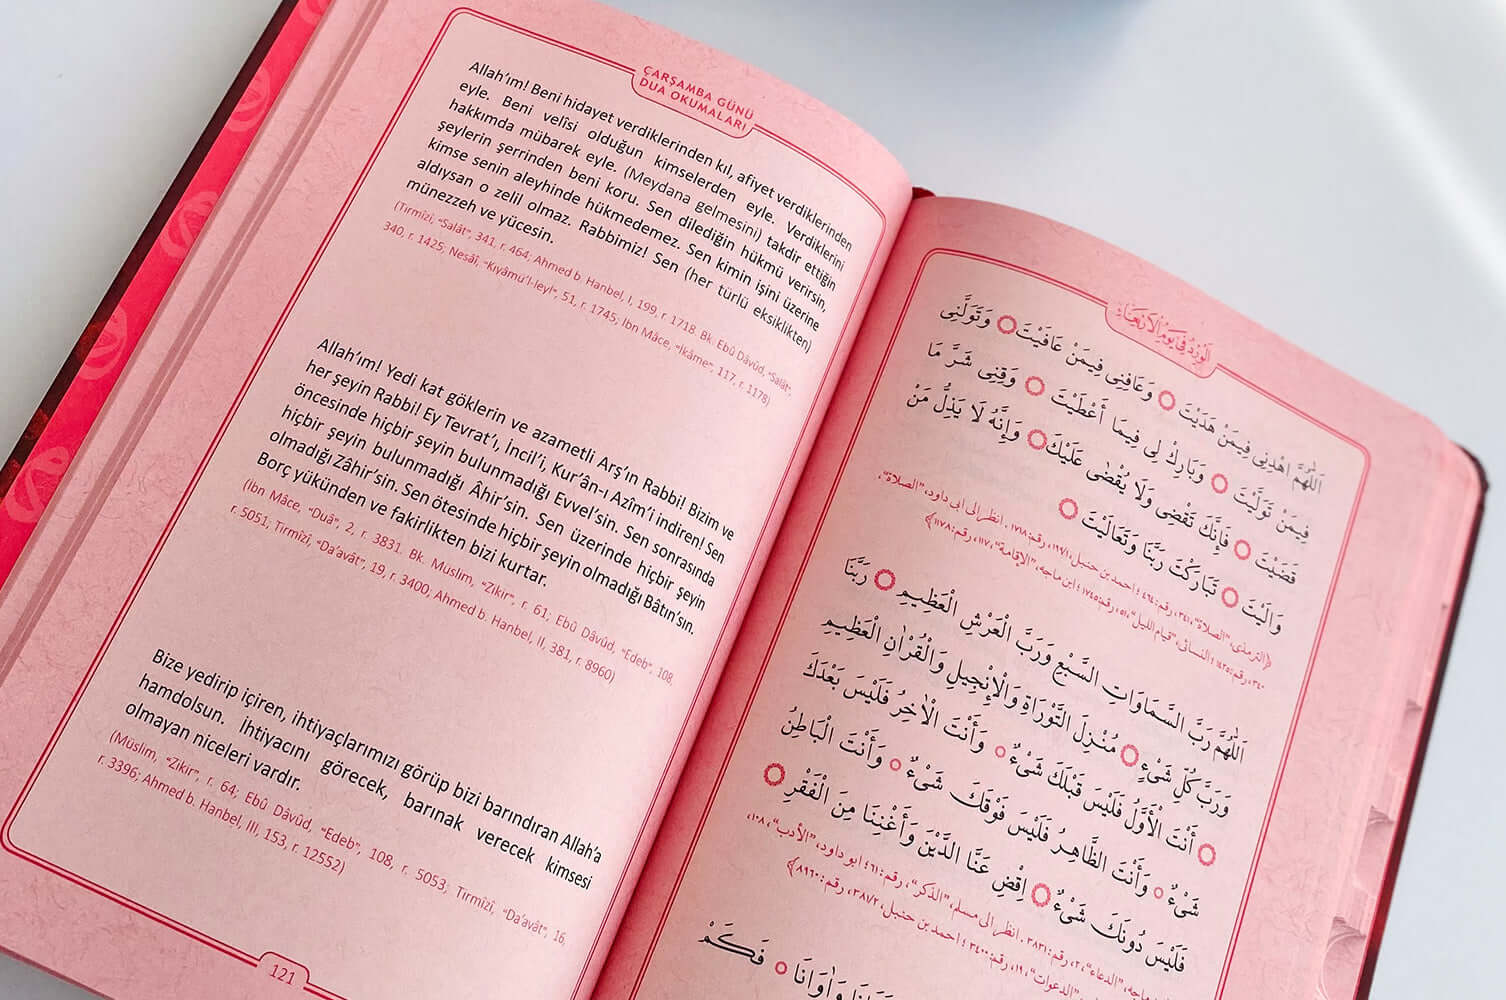 ÇARŞAMBA GÜNÜ
DUA OKUMALARI
Allah’ım! Beni hidayet verdiklerinden kıl, afiyet verdiklerinden
eyle. Beni velîsi olduğun kimselerden eyle. Verdiklerini
hakkımda mübarek eyle. (Meydana gelmesini) takdir ettiğin
şeylerin şerrinden beni koru. Sen dilediğin hükmü verirsin,
kimse senin aleyhinde hükmedemez. Sen kimin işini üzerine
aldıysan o zelil olmaz. Rabbimiz! Sen (her türlü eksiklikten)
münezzeh ve yücesin.
(Tirmîzî, “Salât”, 341, r. 464; Ahmed b. Hanbel, I, 199, r. 1718. Bk. Ebû Dâvûd, “Salât”,
340, r. 1425; Nesâî, “Kıyâmü’l-leyl”, 51, r. 1745; İbn Mâce, “İkâme”, 117, r. 1178)
Allah’ım! Yedi kat göklerin ve azametli Arş’ın Rabbi! Bizim ve
her şeyin Rabbi! Ey Tevrat’ı, İncil’i, Kur’ân-ı Azîm’i indiren! Sen
öncesinde hiçbir şeyin bulunmadığı Evvel’sin. Sen sonrasında
hiçbir şeyin bulunmadığı Âhir’sin. Sen üzerinde hiçbir şeyin
olmadığı Zâhir’sin. Sen ötesinde hiçbir şeyin olmadığı Bâtın’sın.
Borç yükünden ve fakirlikten bizi kurtar.
(İbn Mâce, “Duâ”, 2, r. 3831. Bk. Muslim, “Zikir”, r. 61; Ebû Dâvûd, “Edeb”, 108,
r. 5051; Tirmîzî, “Da’avât”, 19, r. 3400; Ahmed b. Hanbel, II, 381, r. 8960)
Bize yedirip içiren, ihtiyaçlarımızı görüp bizi barındıran Allah’a
hamdolsun. İhtiyacını görecek, barınak verecek kimsesi
olmayan niceleri vardır.
(Müslim, “Zikir”, r. 64; Ebû Dâvûd, “Edeb”, 108, r. 5053; Tirmîzî, “Da’avât”, 16,
r. 3396; Ahmed b. Hanbel, III, 153, r. 12552)
121
اَلْوِرْدُ فِي يَوْمِ الْاَرْبِعَاءِ
اَللّٰهُمَّ اهْدِنِى فِيمَنْ هَدَيْتَ وَعَافِنِى فِيمَنْ عَافَيْتَ وَتَوَلَّنِى
فِيمَنْ تَوَلَّيْتَ وَبَارِكْ لِى فِيمَا أَعْطَيْتَ وَقِنِى شَرَّ مَا
قَضَيْتَ فَإِنَّكَ تَقْضِى وَلَا يُقْضٰى عَلَيْكَ وَإِنَّهُ لَا يَذِلُّ مَنْ
وَالَيْتَ تَبَارَكْتَ رَبَّنَا وَتَعَالَيْتَ
(الترمذى، “الصلاة”، ٣٤١، رقم: ٤٦٤؛ احمد بن حنبل، ١٩٩/١، رقم: ١٧١٨. انظر إلى ابى داود، “الصلاة”،
٣٤٠، رقم: ١٤٢٥؛ النسائى، “قيام الليل”، ٥١، رقم: ١٧٤٥؛ ابن ماجه، “الإقامة”، ١١٧، رقم: ١١٧٨)
اَللّٰهُمَّ رَبَّ السَّمَاوَاتِ السَّبْعِ وَرَبَّ الْعَرْشِ الْعَظِيمِ رَبَّنَا
وَرَبَّ كُلِّ شَىْءٍ مُنْزِلَ التَّوْرَاةِ وَالْإِنْجِيلِ وَالْقُرْاٰنِ الْعَظِيمِ
أَنْتَ الْأَوَّلُ فَلَيْسَ قَبْلَكَ شَىْءٌ وَأَنْتَ الْاٰخِرُ فَلَيْسَ بَعْدَكَ
شَىْءٌ وَأَنْتَ الظَّاهِرُ فَلَيْسَ فَوْقَكَ شَىْءٌ وَأَنْتَ الْبَاطِنُ
فَلَيْسَ دُونَكَ شَىْءٌ اِقْضِ عَنَّا الدَّيْنَ وَأَغْنِنَا مِنَ الْفَقْرِ
ماجه، “الدعاء”، ٢، رقم: ٣٨٣١. انظر إلى مسلم، “الذكر”، رقم: ٦١؛ ابو داود، “الأدب”، ١٠٨،
“الدعوات”، ١٩، رقم: ٣٤٠٠؛ احمد بن حنبل، ٣٨١/٢، رقم: ٨٩٦٠)
وَاٰوَانَا فَكَمْ